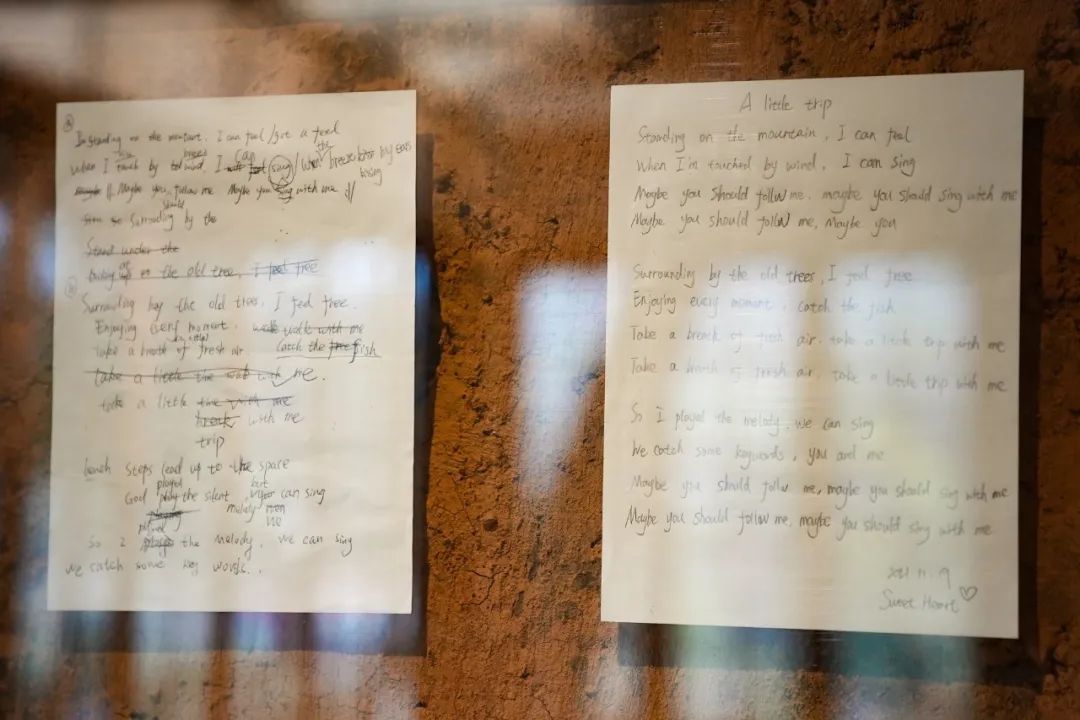 A
I'm standing on the mountain. I can feel / get a feel
When I touch by wind, I can sing / when the breeze by ears
Maybe you follow me Maybe you sing with me
should
Surrounding by the
Stand under the
on the old tree, I feel free
B
Surrounding by the old trees, I feel free.
Enjoying every moment. walk with me
Take a breath of fresh air. Catch the free fish
take a little with me.
take a little time with me
break with me
trip
Steps lead up to the space
played
God the silent, can sing
melody
So I the melody, we can sing
We catch some key words..
A little trip
Standing on the mountain, I can feel
When I'm touched by wind, I can sing
Maybe you should follow me, maybe you should sing with me
Maybe you should follow me, Maybe you
Surrounding by the old trees, I feel free
Enjoying every moment, catch the fish
Take a break of fresh air, take a little trip with me
Take a breath of fresh air, take a little trip with me
So I played the melody, we can sing
We catch some keywords, you and me
Maybe you should follow me, maybe you should sing with me
Maybe you should follow me, maybe you should sing with me
2021.11.19
Sweet Heart♡